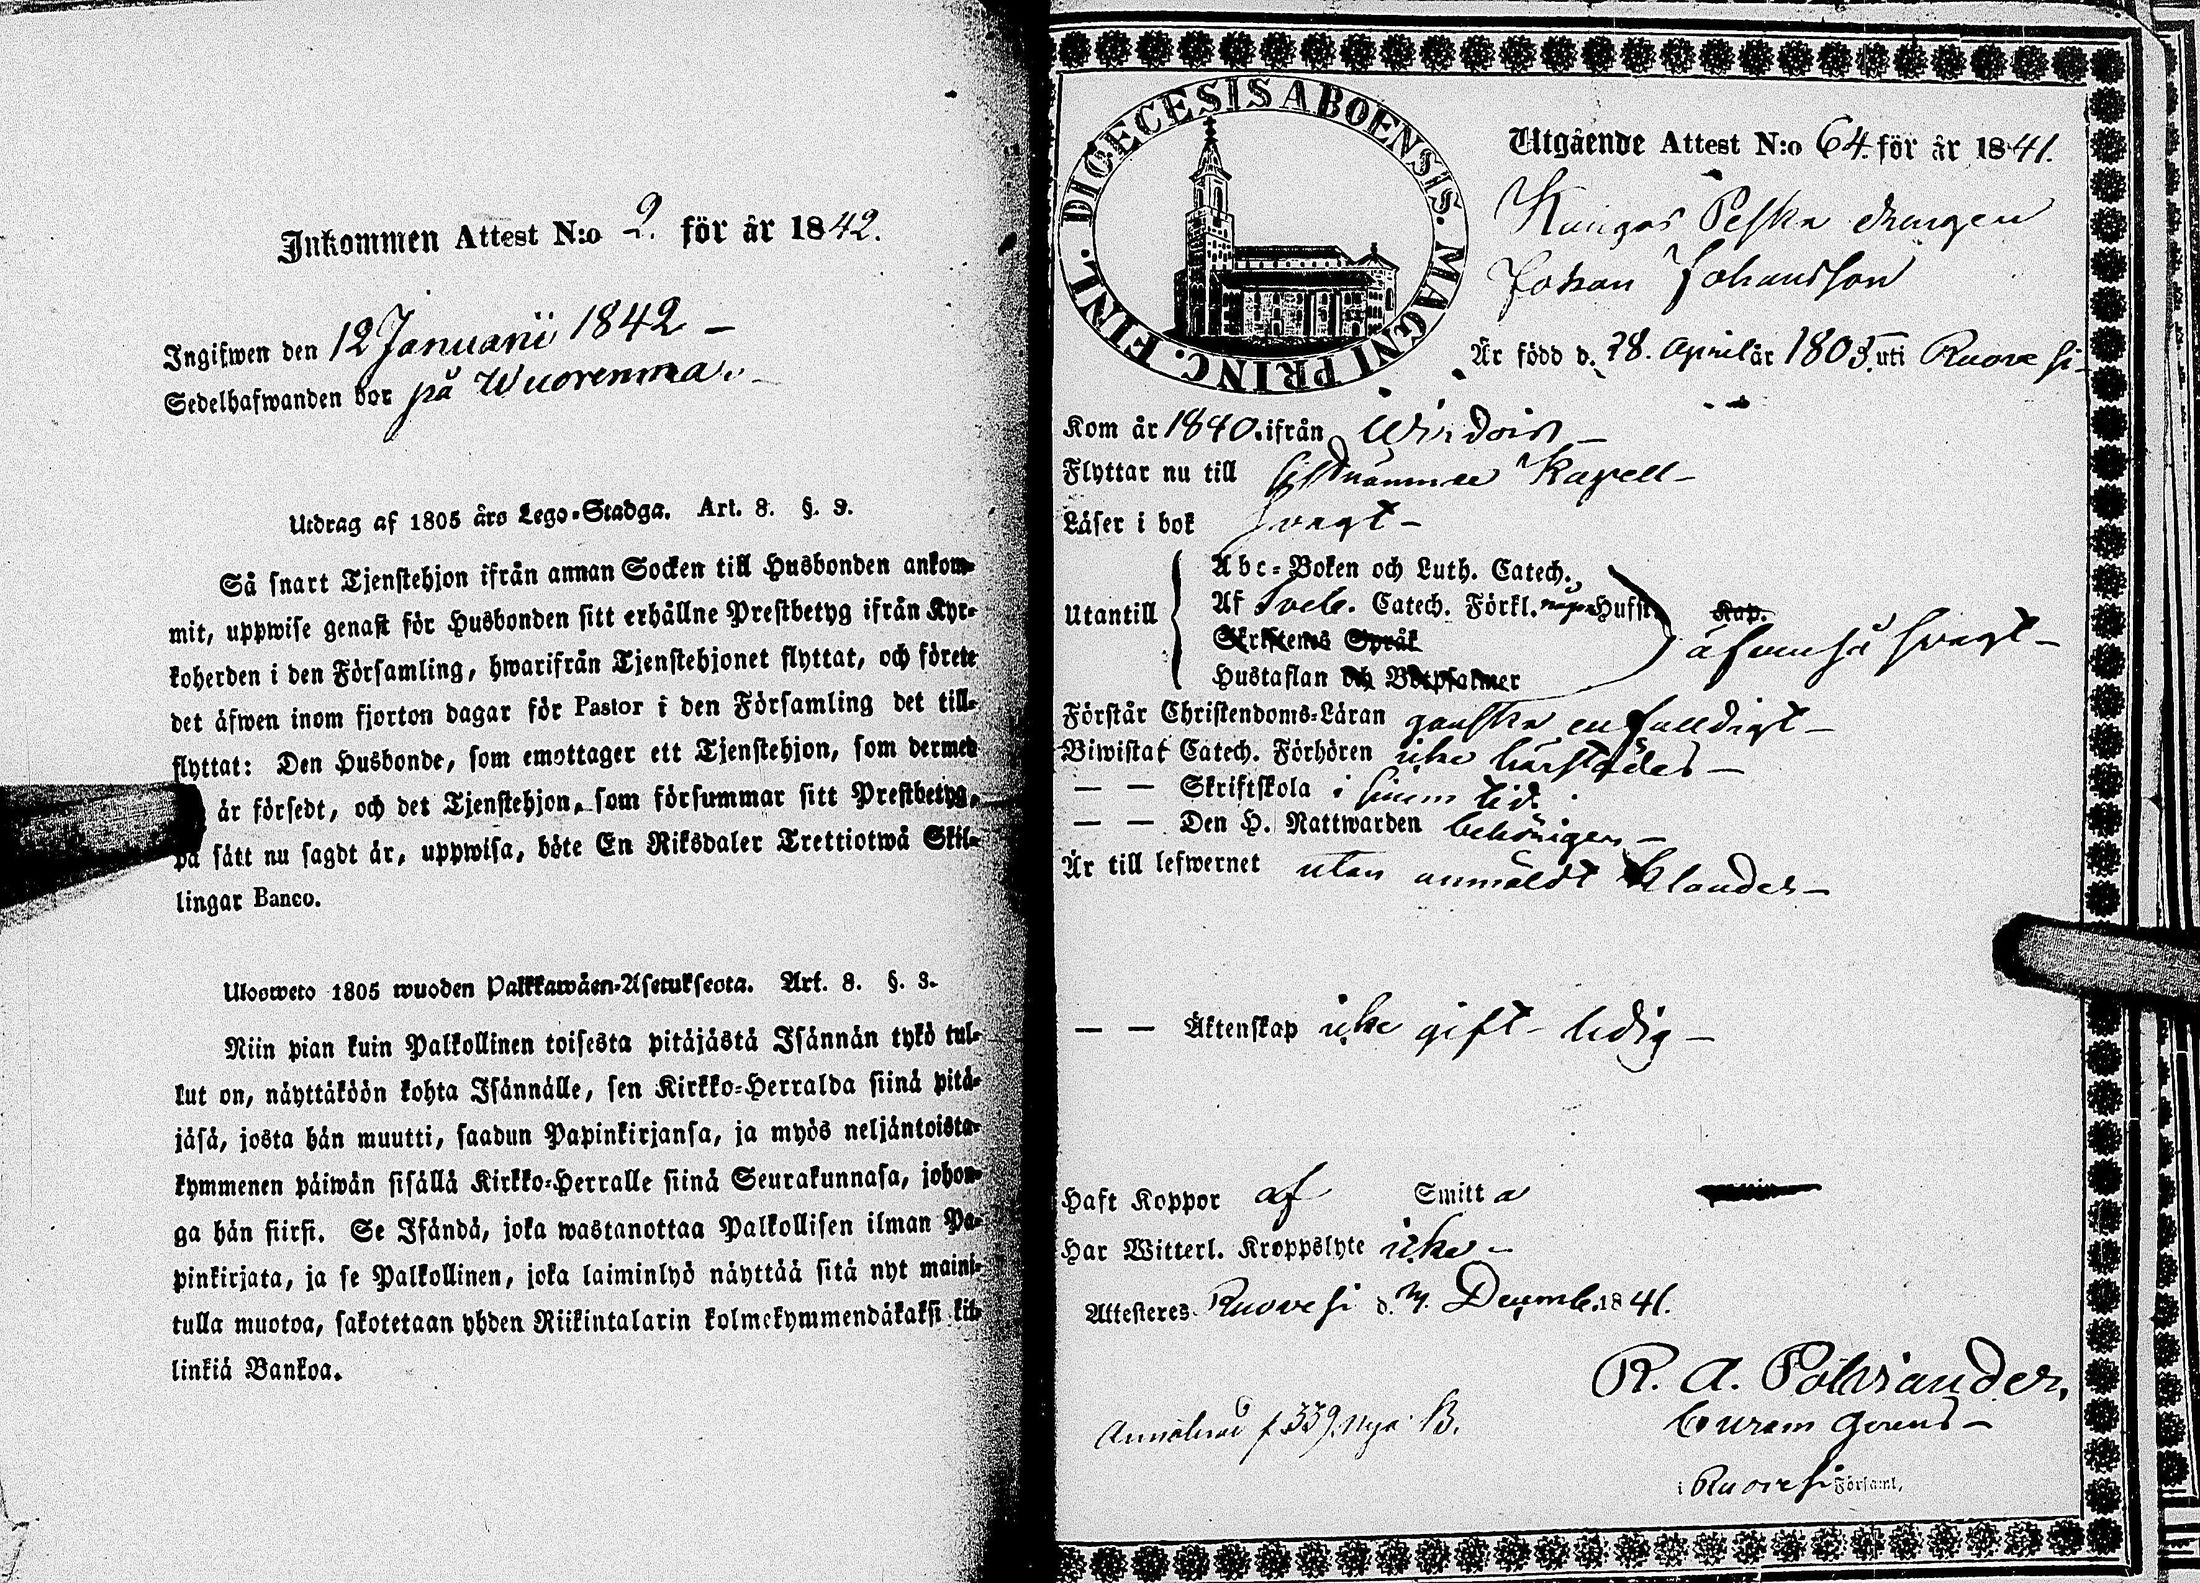 Inkommen Attest N:o 2. för år 1842.
Ingifwen den 12 Januarii 1842 –
Sedelhafwanden bor på Wuorenmaa –
Utdrag af 1805 års Lego-Stadga. Art. 8. §. 3.
Så snart Tjenstehjon ifrån annan Socken till Husbonden ankom-
mit, uppwise genast för Husbonden sitt erhållne Prestbetyg ifrån Kyr-
koherden i den Församling, hwarifrån Tjenstehjonet flyttat, och förete
det äfwen inom fjorton dagar för Pastor i den Församling det till-
flyttat: Den Husbonde, som emottager ett Tjenstehjon, som dermed
är försedt, och det Tjenstehjon, som försummar sitt Prestbetyg,
på sätt nu sagdt är, uppwisa, böte En Riksdaler Trettiotwå Skil-
lingar Banco.
Ulosweto 1805 wuoden Palkkawäen-Asetuksesta. Art. 8. §. 3.
Niin pian kuin Palkollinen toisesta pitäjästä Isännän tykö tul-
lut on, näyttäköön kohta Isännälle, sen Kirkko-Herralda siinä pitä-
jäsä, josta hän muutti, saadun Papinkirjansa, ja myös neljäntoista-
kymmenen päiwän sisällä Kirkko-Herralle siinä Seurakunnasa, johon-
ga hän siirsi. Se Isändä, joka wastanottaa Palkollisen ilman Pa-
pinkirjata, ja se Palkollinen, joka laiminlyö näyttää sitä nyt maini-
tulla muotoa, sakotetaan yhden Riikintalarin kolmekymmendäkaksi kil-
linkiä Bankoa.
DIOECESIS ABOENSIS. MAGNI PRINC. FINL.
Utgående Attest N:o 64. för år 1841.
Kangas Peska drängen
Johan Johansson
Är född d. 28. April år 1803. uti Ruovesi –
Kom år 1840. ifrån Wirdois –
Flyttar nu till Kapell –
Läser i bok svagt –
Utantill
Abc-Boken och Luth. Catech.
Af Sveb. Catech. Förkl. några Husft. Kap.
Skriftenes Språk
äfvenså svagt –
Hustaflan och Botpsalmer
Förstår Christendoms-Läran ganska enfalldigt –
Biwistat Catech. Förhören icke härstädes –
– – Skriftskola i sinom tid.
– – Den H. Nattwarden behörigen –
Är till lefwernet utan anmäldt klander –
– – Äktenskap icke gift – ledig –
Haft Koppor af Smitta
Har Witterl. Kroppslyte icke –
Attesteres. Ruovesi d. Decemb. 1841.
R. A. Polviander,
Curam Gerens –
f 339. Nya B.
i Ruovesi Församl.